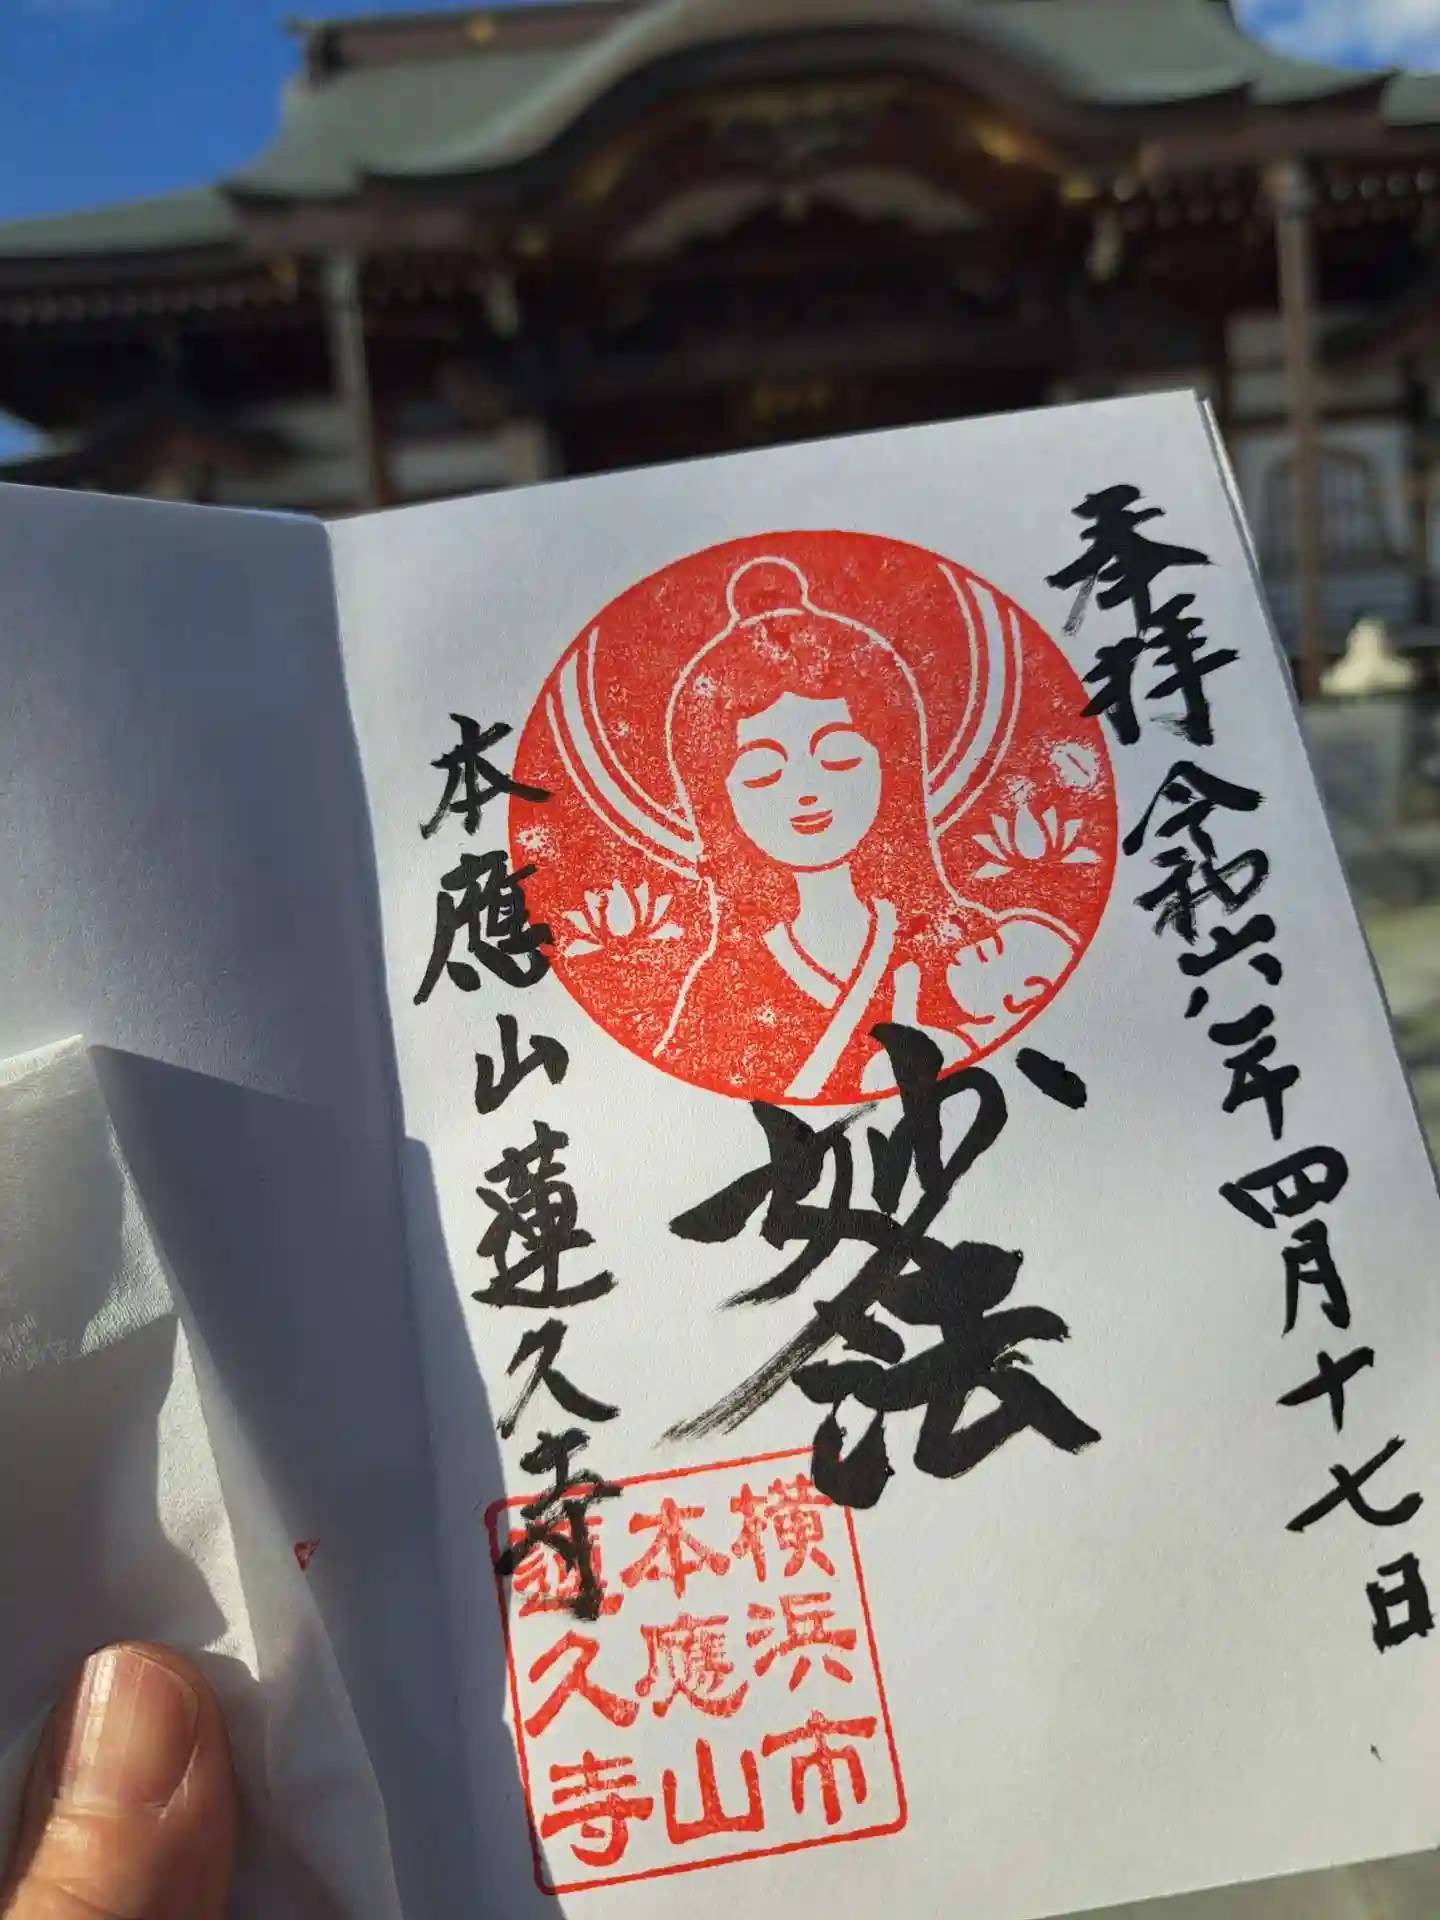 奉拝
令和六年四月十七日
妙法
本應山蓮久寺
横浜市
本應山
蓮久寺